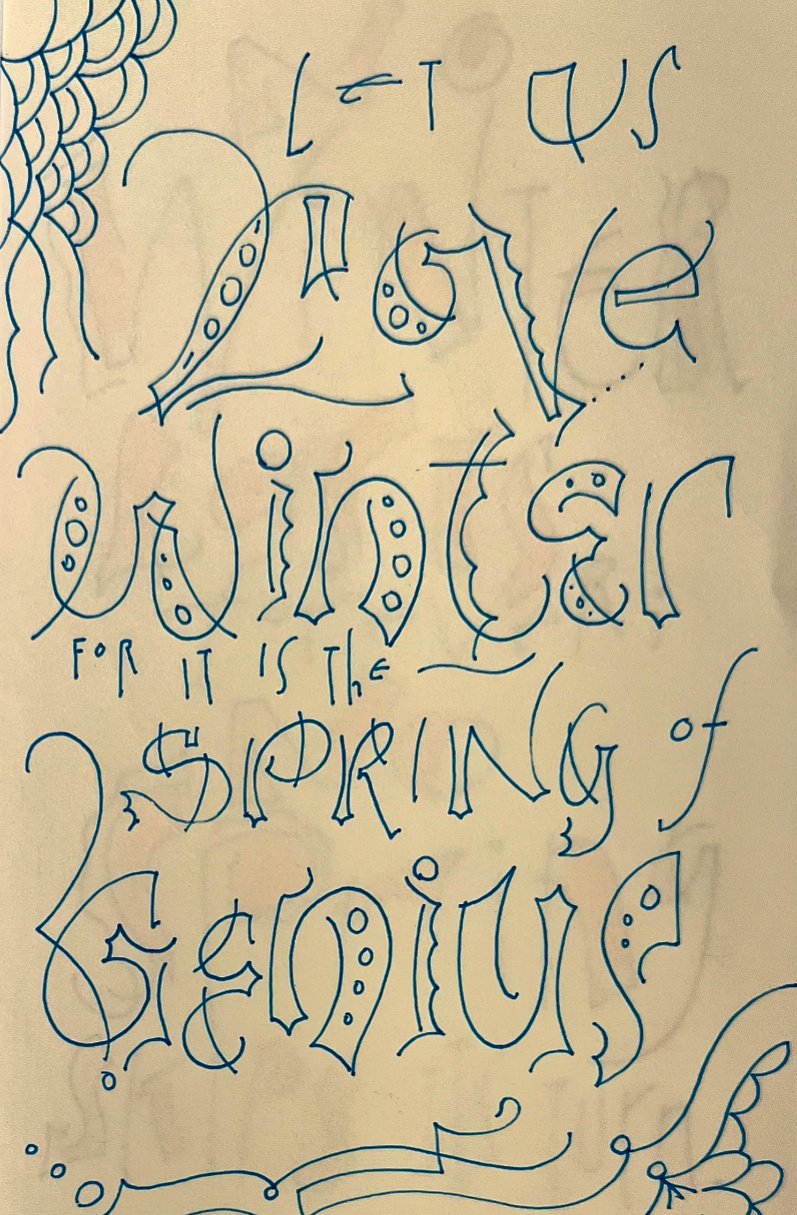 LET US
Love
Winter
FOR IT IS ThE
SPRING of
Genius